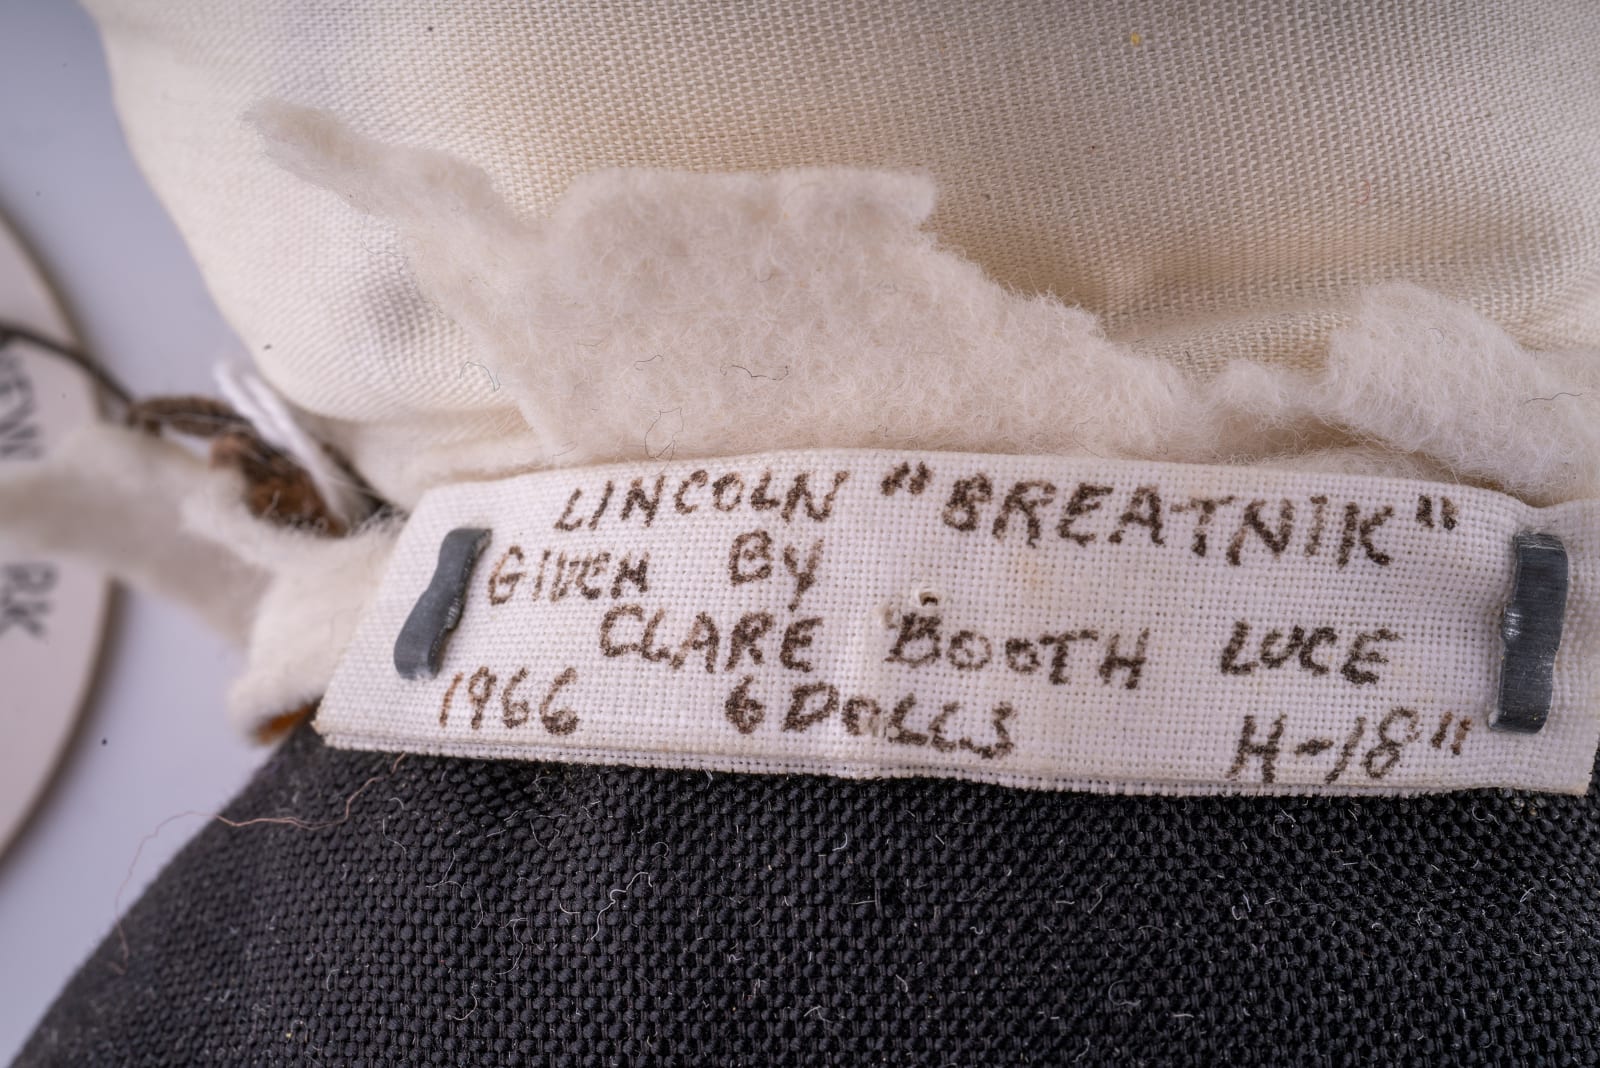 LINCOLN "BREATNIK"
GIVEN BY
CLARE BOOTH LUCE
1966 6 DOLLS H-18"
NEW
RK